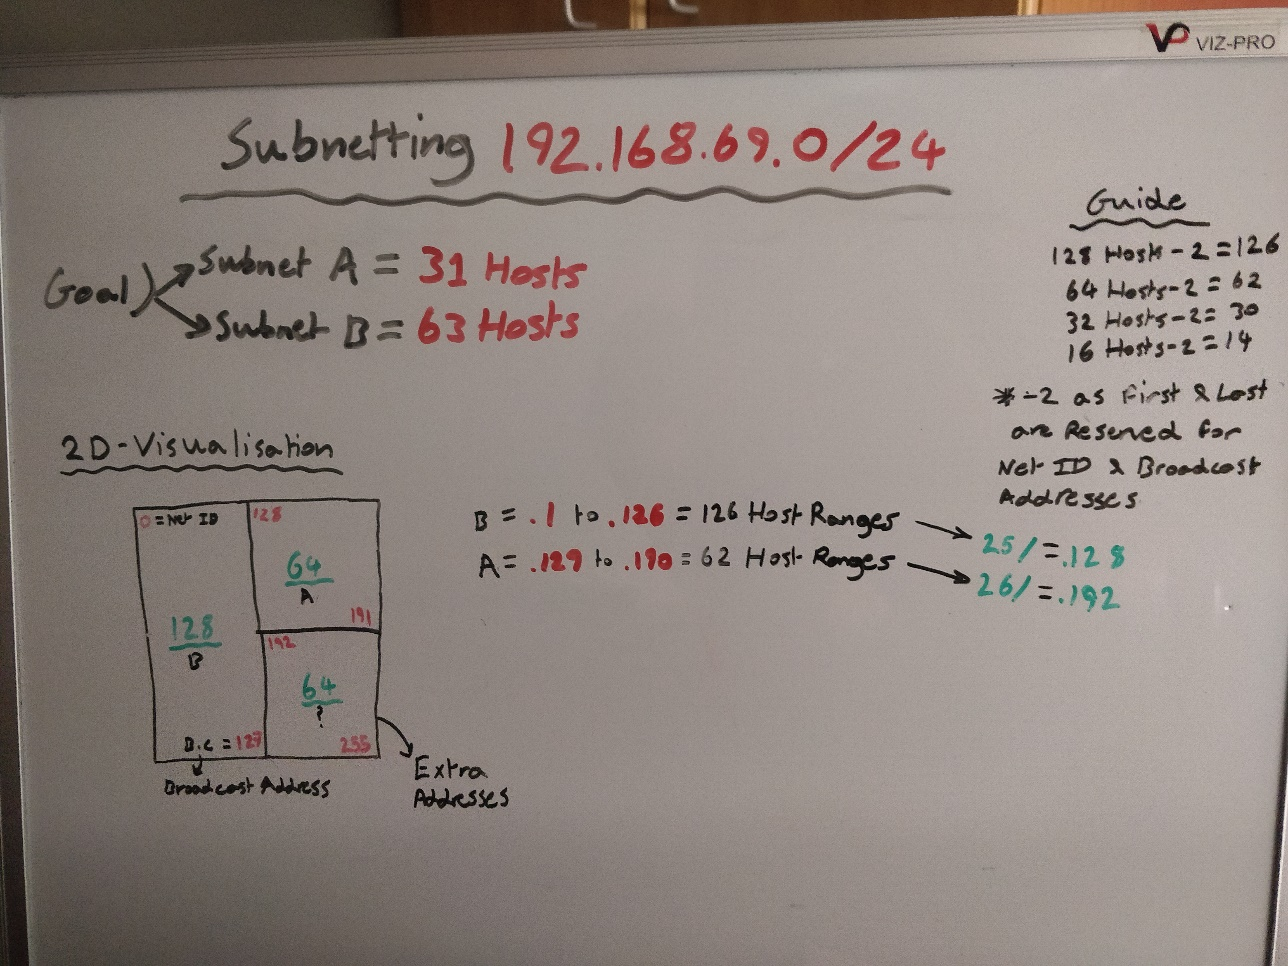 VP VIZ-PRO
Subnetting 192.168.69.0/24
Goal
Subnet A = 31 Hosts
Subnet B = 63 Hosts
Guide
128 Hosts - 2 = 126
64 Hosts - 2 = 62
32 Hosts - 2 = 30
16 Hosts - 2 = 14
* -2 as First & Last
are Reserved for
Net ID & Broadcast
Addresses
2D-Visualisation
0 = Net ID
128
64
A
191
128
B
192
64
?
B.C = 127
255
Broadcast Address
Extra
Addresses
B = .1 to .126 = 126 Host Ranges
A = .129 to .190 = 62 Host Ranges
25/ = .128
26/ = .192